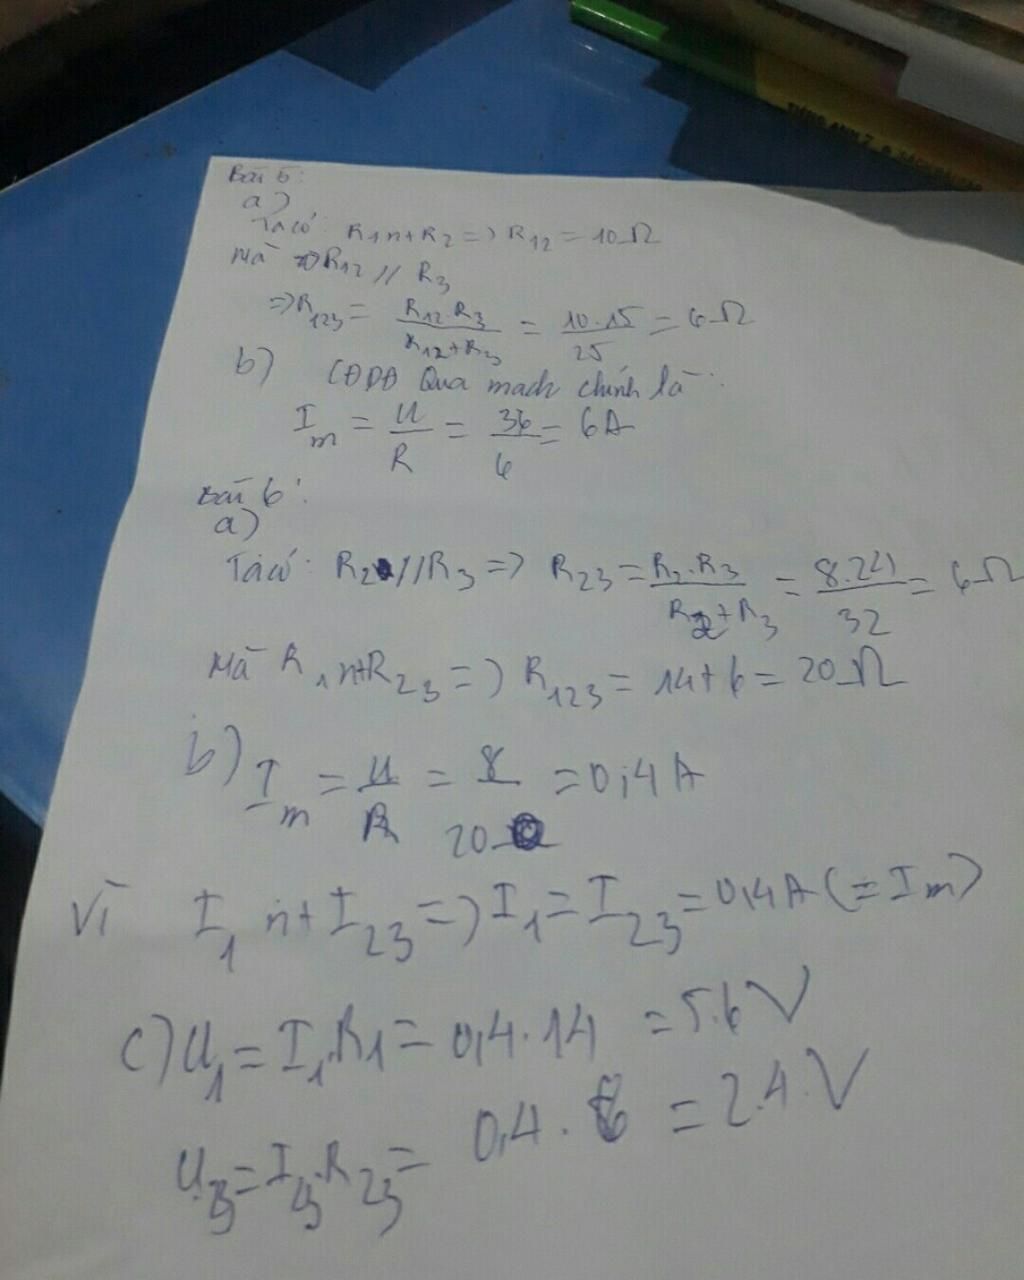 Bài 5:
a)
Ta có: R1 nt R2 => R12 = 10Ω
Mà R12 // R3
=> R123 = R12.R3 / R12+R3 = 10.15 / 25 = 6Ω
b) CĐDĐ Qua mạch chính là:
Im = U / R = 36 / 6 = 6A
Bài 6:
a)
Ta có: R2 // R3 => R23 = R2.R3 / R2+R3 = 8.24 / 32 = 6Ω
Mà R1 nt R23 => R123 = 14+6 = 20Ω
b) Im = U / R = 8 / 20 = 0,4A
Vì I1 nt I23 => I1 = I23 = 0,4A (= Im)
c) U1 = I1.R1 = 0,4.14 = 5.6V
U23 = I23.R23 = 0,4.6 = 2.4V